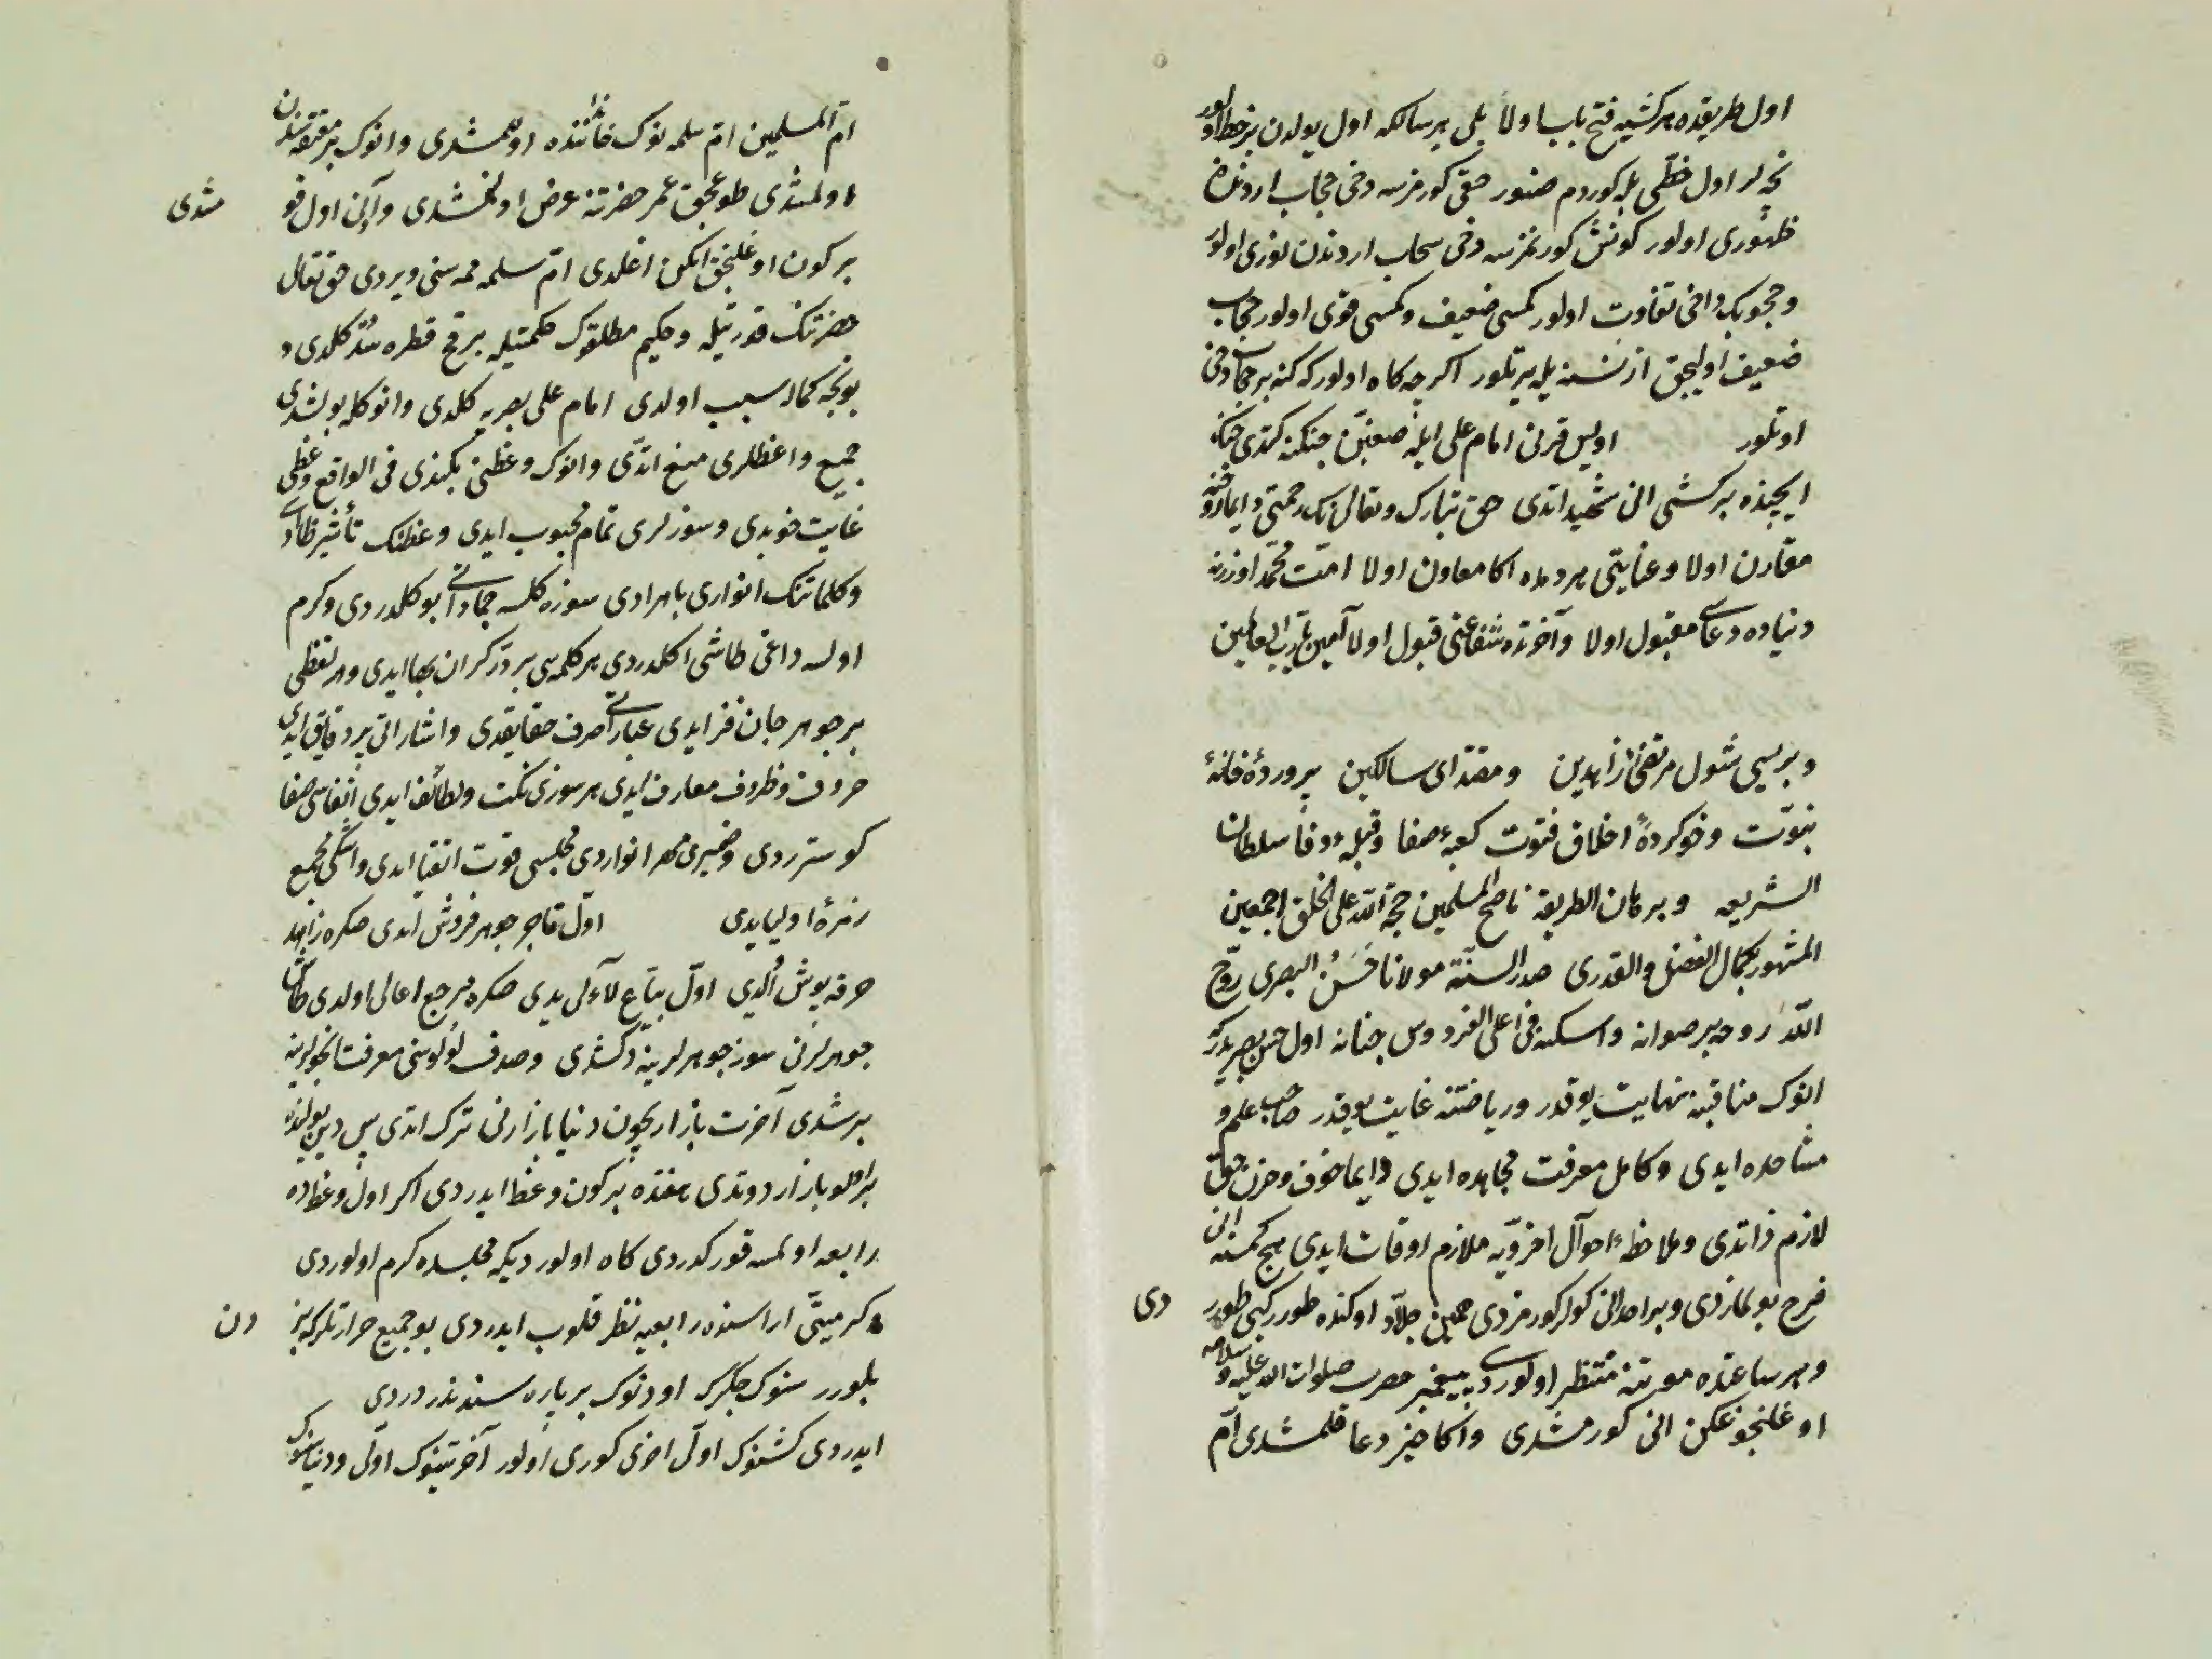 اول طريقده هر كشيه فتح باب اولا بلى هر سالكه اول يولدن بر خط اولور
نجه لر اول خطى بله كوردم صنور حقى كورمزسه دخى حجاب اردندن
ظهورى اولور كونش كورنمزسه دخى سحاب اردندن نورى اولور
و محجوبك داخى تفاوت اولور كمسى ضعيف و كمسى قوى اولور حجاب
ضعيف اوليجق از نسنه يله يرتلور اكر چه كاه اولور كه كنه بر حجاب دخى
اورتلور اويس قرنى امام على ايله صفين جنكنه كتدى جنك
ايچنده بر كشى انى شهيد اتدى حق تبارك و تعالى نك رحمتى دايما روحنه
مقارن اولا و عنايتى هر دمده اكا معاون اولا امت محمد اوزرنه
دنياده دعاسى مقبول اولا و آخرتده شفاعتى قبول اولا آمين يا رب العالمين
و بريسى شول مرتضىء زاهدين و مقتداى سالكين پروردۀ خانۀ
نبوّت و خو كردۀ اخلاق فتوت كعبۀ صفا و قبلۀ وفا سلطان
الشريعه و برهان الطريقه ناصح المسلمين حجة الله على الخلق اجمعين
المشهور بكمال الفضل والقدرى صدر السنّة مولانا حَسَنُ البصرى روّح
الله روحه برضوانه و اسكنه فى اعلى الفردوس جنانه اول حسن بصريدر كه
انوك مناقبنه نهايت يوقدر و رياضتنه غايت يوقدر صاحب علم و
مشاهده ايدى و كامل معرفت مجاهده ايدى دايما خوف و حزن حق
لازم ذاتدى و ملاحظۀ احوال اخرويّه ملازم اوقات ايدى هيچ كمسنه انى
فرح بولمازدى و بر احد انى كولر كورمزدى همين جلاد اوكنده طورر كبى طورر دى
و هر ساعتده موتنه منتظر اولوردى پيغمبر حضرت صلوات الله عليه و سلامه
اوغلنجوغكن انى كورمشدى و اكا خير دعا قلمشدى امّ
امّ المسلمين امّ سلمه نوك خانه سنده اولمشدى و انوك بر معتقه سندن
اولمشدى طوغيجق عمر حضرتنه عرض اولنمشدى و آنى اول قو مشدى
بر كون اوغلنجق ايكن اغلدى امّ سلمه ممه سنى ويردى حق تعالى
حضرتنك قدرتيله و حكيم مطلقوك حكمتيله بر قچ قطره سُد كلدى و
بونجه كماله سبب اولدى امام على بصريه كلدى و انوكله بولشدى
جميع واعظلرى منع اتدى و انوك وعظنى بكندى فى الواقع وعظى
غايت خوبدى و سوزلرى تمام محبوب ايدى وعظنك تأثير ظاهر
و كلماتنك انوارى باهرادى سوزه كلسه جماداتى بو كلدردى و كرم
اولسه داغى طاشى اكلدردى هر كلمه سى بر درّ كران بها ايدى و هر لفظى
بر جوهر جان فزايدى عباراتى صرف حقايقدى و اشاراتى پر دقايق ايدى
حروف و ظروف معارف ايدى هر سوزى نكت و لطائف ايدى انفاسى صفا
كوسترردى و ضميرى مهر انواردى مجلسى قوت اتقيا ايدى و اشكى مجمع
زمرۀ اوليايدى اوّل تاجر جوهر فروش ايدى صكره زاهد
خرقه پوش اُلدى اوّل بيّاع لآلى يدى صكره مرجع اعالى اولدى
جوهرلرنى سوز جوهرلرينه دكشدى و صدف لؤلؤسنى معرفت انجولرينه
بر شدى آخرت بازاريچون دنيا بازارنى ترك اتدى پس دين يولنده
بر اولو بازار دوتدى هفتده بر كون وعظ ايدردى اكر اول وعظده
رابعه اولمسه قور كدردى كاه اولور ديكه مجلسده كرم اولوردى
و كرميتى اراسنده رابعيه نظر قلوب ايدردى بو جميع حرارتلر كه بز دن
بلورر سنوك جكرك اودنوك بر پاره سنددر ديردى
ايدردى كشنوك اوّل اخرى كورى اولور آخرتينوك اوّلى و دنيا سنوك